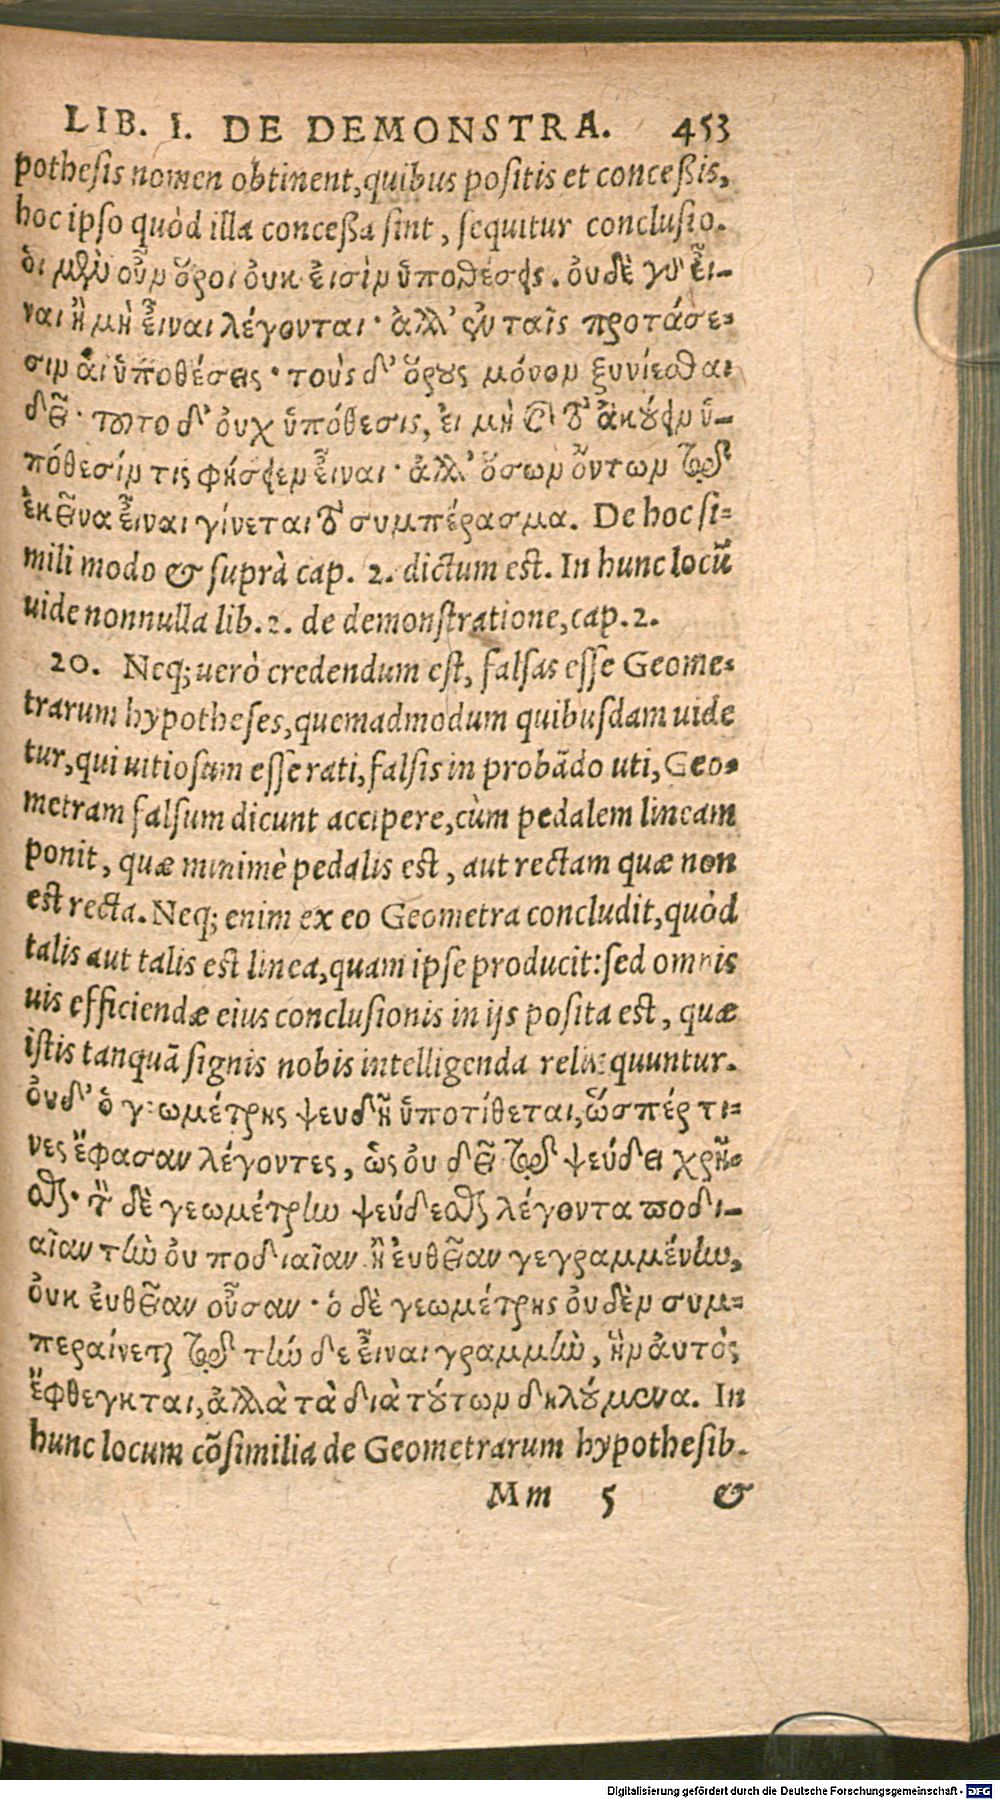 LIB. I. DE DEMONSTRA. 453
pothesis nomen obtinent, quibus positis et conceßis,
hoc ipso quòd illa conceßa sint, sequitur conclusio.
ὁι μὲν οὖν ὅροι ὀυκ ἐισὶν ὑποθέσεις. ὀυδὲ γὸ ἐῖ-
ναι ἢ μὴ ἐῖναι λέγονται· ἀλλ' ἐν ταῖς προτάσε-
σιν ἁι ὑποθέσεις· τοὺς δ' ὅρους μόνον ξυνίεσθαι
δεῖ· τοῦτο δ' ὀυχ ὑπόθεσις, ἐι μὴ καὶ τὸ ἀκούειν ὑ-
πόθεσίν τις φήσειεν ἐῖναι· ἀλλ' ὅσων ὄντων τῷ
ἐκεῖνα ἐῖναι γίνεται τὸ συμπέρασμα. De hoc si-
mili modo & suprà cap. 2. dictum est. In hunc locū
uide nonnulla lib. 2. de demonstratione, cap. 2.
20. Neq; uerò credendum est, falsas esse Geome-
trarum hypotheses, quemadmodum quibusdam uide
tur, qui uitiosum esse rati, falsis in probādo uti, Geo-
metram falsum dicunt accipere, cùm pedalem lineam
ponit, quæ minimè pedalis est, aut rectam quæ non
est recta. Neq; enim ex eo Geometra concludit, quòd
talis aut talis est linea, quam ipse producit: sed omnis
uis efficiendæ eius conclusionis in ijs posita est, quæ
istis tanquā signis nobis intelligenda relinquuntur.
ὀυδ' ὁ γεωμέτρης ψευδῆ ὑποτίθεται, ὥσπέρ τι-
νες ἔφασαν λέγοντες, ὡς ὀυ δεῖ τῷ ψεύδει χρῆ-
σθαι· τὸν δὲ γεωμέτρην ψεύδεσθαι λέγοντα ποδι-
αῖαν τὴν ὀυ ποδιαῖαν ἢ ἐυθεῖαν γεγραμμένην,
ὀυκ ἐυθεῖαν οὖσαν· ὁ δὲ γεωμέτρης ὀυδὲν συμ-
περαίνεται τῷ τήν δε ἐῖναι γραμμὴν, ἣν ἀυτὸς
ἔφθεγκται, ἀλλὰ τὰ διὰ τούτων δηλούμενα. In
hunc locum cōsimilia de Geometrarum hypothesib.
Mm 5 &
Digitalisierung gefördert durch die Deutsche Forschungsgemeinschaft - DFG